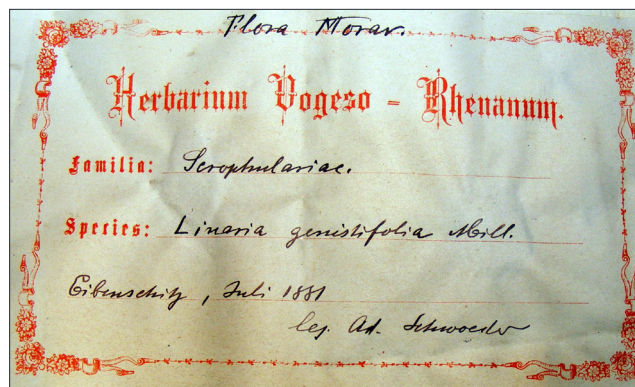 Flora Morav.
Herbarium Vogeso - Rhenanum.
Familia: Scrophulariae.
Species: Linaria genistifolia Mill.
Eibenschitz, Juli 1881
leg. Ad. Schwoeder